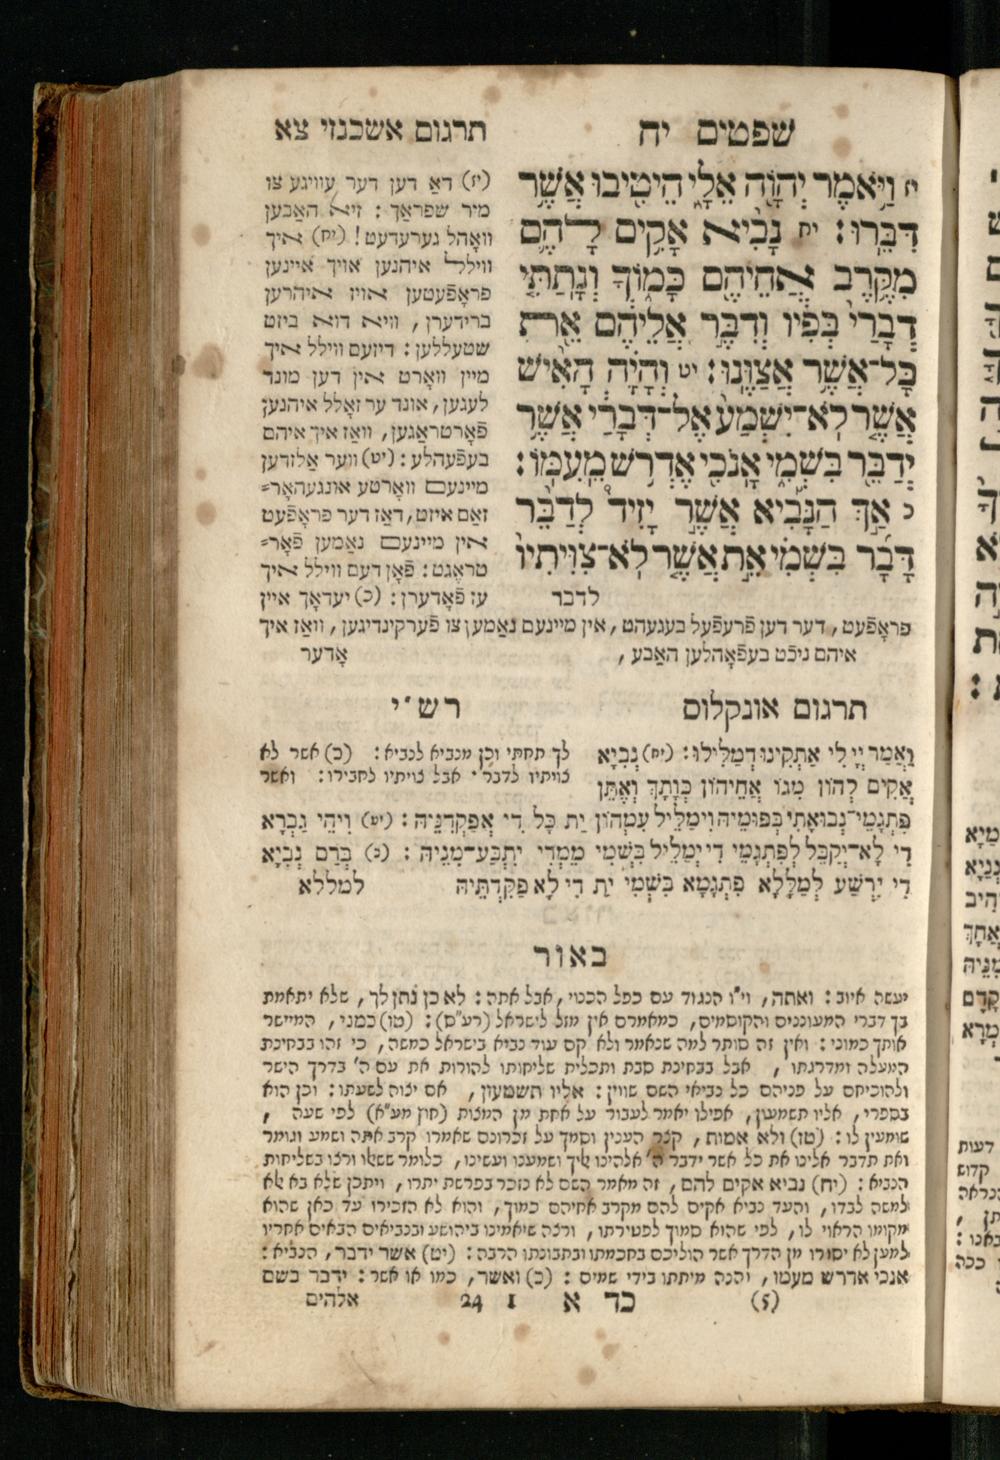 שפטים יח
תרגום אשכנזי צא
יז וַיֹּ֥אמֶר יְהוָ֖ה אֵלָ֑י הֵיטִ֖יבוּ אֲשֶׁ֥ר
דִּבֵּֽרוּ׃ יח נָבִ֨יא אָקִ֥ים לָהֶ֛ם
מִקֶּ֥רֶב אֲחֵיהֶ֖ם כָּמ֑וֹךָ וְנָתַתִּ֤י
דְבָרַי֙ בְּפִ֔יו וְדִבֶּ֣ר אֲלֵיהֶ֔ם אֵ֖ת
כָּל־אֲשֶׁ֥ר אֲצַוֶּֽנּוּ׃ יט וְהָיָ֗ה הָאִישׁ֙
אֲשֶׁ֤ר לֹֽא־יִשְׁמַע֙ אֶל־דְּבָרַ֔י אֲשֶׁ֥ר
יְדַבֵּ֖ר בִּשְׁמִ֑י אָנֹכִ֖י אֶדְרֹ֥שׁ מֵעִמּֽוֹ׃
כ אַ֣ךְ הַנָּבִ֡יא אֲשֶׁ֣ר יָזִיד֩ לְדַבֵּ֨ר
דָּבָ֜ר בִּשְׁמִ֗י אֵ֣ת אֲשֶׁ֤ר לֹֽא־צִוִּיתִיו֙
לדבר
(יז) דאַ דען דער עוויגע צו
מיר שפראַך : זיא האַבען
וואָהל גערעדעט! (יח) איך
וויללל איהנען אויך איינען
פראָפֿעטען אויז איהרען
ברידערן, וויא דוא ביזט
שטעללען : דיזעם ווילל איך
מיין וואָרט אין דען מונד
לעגען, אונד ער זאָלל איהנען
פֿאָרטראַגען, וואַז איך איהם
בעפֿעהלע : (יט) ווער אַלזדען
מיינעם וואָרטע אונגעהאָר=
זאַם איזט, דאַז דער פראָפֿעט
אין מיינעם נאַמען פֿאָר=
טראַגט : פֿאָן דעם ווילל איך
עז פֿאָדערן : (כ) יעדאָך איין
פראָפֿעט, דער דען פֿרעפֿעל בעגעהט, אין מיינעם נאַמען צו פֿערקינדיגען, וואַז איך
איהם ניכֿט בעפֿאָהלען האַבע,
אָדער
תרגום אונקלוס
רש״י
וַאֲמַר יְיָ לִי אַתְקִינוּ דְמַלִּילוּ : (יח) נְבִיָּא
אֲקִים לְהוֹן מִגּוֹ אֲחֵיהוֹן כְּוָתָךְ וְאֶתֵּן
פִּתְגָמֵי־נְבוּאָתִי בְּפוּמֵיהּ וִימַלֵּיל עִמְּהוֹן יַת כָּל דִּי אֲפַקְּדִנֵּיהּ : (יט) וִיהֵי גַבְרָא
דִּי לָא־יְקַבֵּל לְפִתְגָמֵי דִּי יְמַלֵּיל בִּשְׁמִי מֵמְרִי יִתְבַּע־מִנֵּיהּ : (כ) בְּרַם נְבִיָּא
דִּי יַרְשַׁע לְמַלָּלָא פִתְגָמָא בִּשְׁמִי יַת דִּי לָא פַקֵּדְתֵּיהּ
למללא
לך תחתי וכן מנביא לנביא : (כ) אשר לא
צויתיו לדבר . אבל צויתיו לחבירו : ואשר
באור
יעשה איוב : ואתה, וי״ו הנגוד עם כפל הכנוי, אבל אתה : לא כן נתן לך, שלא יתאמת
בך דברי המעוננים והקוסמים, כמאמרם אין מזל לישראל (רע״ס) : (טו) כמני, המיישר
אותך כמוני : ואין זה סותר למה שנאמר ולא קם עוד נביא בישראל כמשה, כי זהו בבחינת
המעלה ומדרגתו, אבל בבחינת סבת ותכלית שליחותו להורות את עם ה' בדרך הישר
ולהוכיחם על פניהם כל נביאי השם שווין : אליו תשמעון, אם יצוה לשעתו : וכן הוא
בספרי, אליו תשמעון, אפילו יאמר לעבור על אחת מן המצות (חוץ מע״א) לפי שעה,
שומעין לו : (טז) ולא אמות, קצר הענין וסמך על זכרונם שאמרו קרב אתה ושמע וגומר
ואת תדבר אלינו את כל אשר ידבר ה' אלהינו אליך ושמענו ועשינו, כלומר ששאלו ורצו בשליחות
הנביא : (יח) נביא אקים להם, זה מאמר השם לא נזכר בפרשת יתרו, ויתכן שלא בא אלא
למשה לבדו, והעד נביא אקים להם מקרב אחיהם כמוך, והוא לא הזכירו עד כאן שהוא
מקומו הראוי לו, לפי שהוא סמוך לפטירתו, ורצה שיאמינו ביהושע ובנביאים הבאים אחריו
למען לא יסורו מן הדרך אשר הוליכם בחכמתו ובתבונתו הרבה : (יט) אשר ידבר, הנביא :
אנכי אדרש מעמו, והנה מיתתו בידי שמים : (כ) ואשר, כמו או אשר : ידבר בשם
(5) כד א 1 24 אלהים